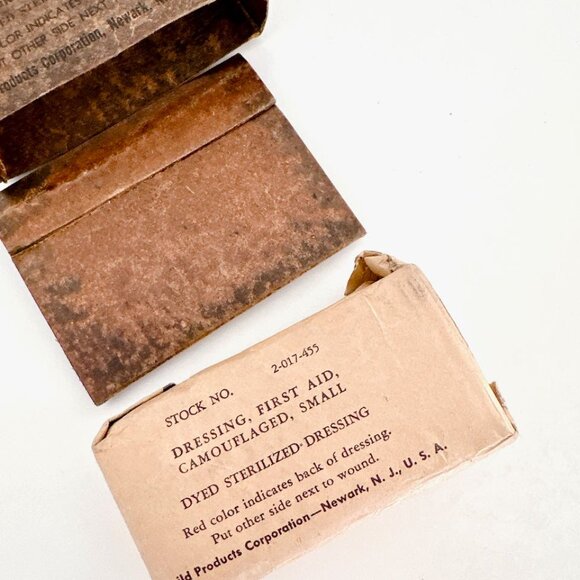 OLOR INDICATES
UT OTHER SIDE NEXT
Products Corporation, Newark,
STOCK NO. 2-017-455
DRESSING, FIRST AID,
CAMOUFLAGED, SMALL
DYED STERILIZED DRESSING
Red color indicates back of dressing.
Put other side next to wound.
ild Products Corporation—Newark, N. J., U. S. A.